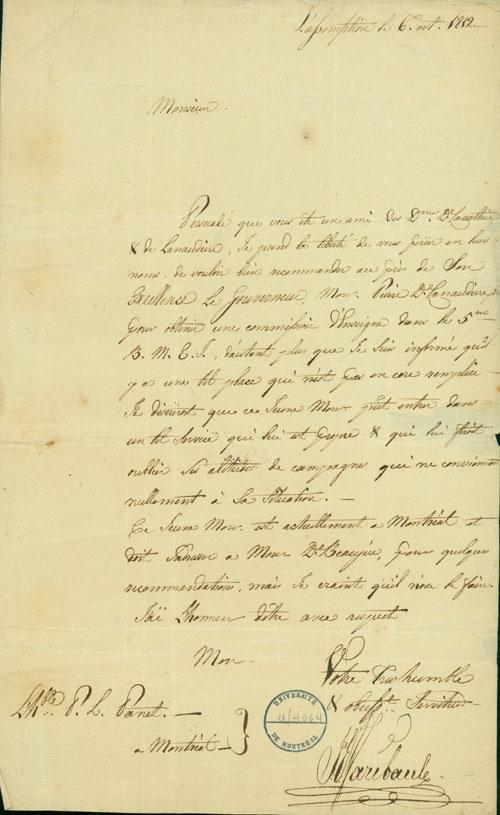 L'assomption le 6. oct. 1812
Monsieur.
Persuadé que vous ete un ami des Dmes De Lanothière
& de Lanaudière, Je prend la liberté de vous prier en leur
noms de vouloir bien recommander au près de Son
Excellence Le Gouverneur, Monr. Pierre De Lanaudière
pour obtenir une commission d'Enseigne dans le 5me
B. M. E. I., d'autant plus que Je Suis informé qu'il
y a une tel place qui n'est pas en core remplie
Je désirerot que ce Jeune Monr put entrer dans
un tel Service qui lui est propre & qui lui feroit
oublier Ses de campagnes qui ne conviennent
nullement à Sa Situation. —
Ce Jeune Monr. est actuellement a Montréal et
doit a Monr De Beaujeu, pour quelques
recommandations, mais Je craint qu'il n'ose le faire.
J'ai L'honneur dêtre avec respect
Monr.
Votre Très humble
& obeisst. Serviteur
L'Hble. P. L. Panet. —
a Montréal —
UNIVERSITÉ
U/4064
DE MONTRÉAL
Faribault